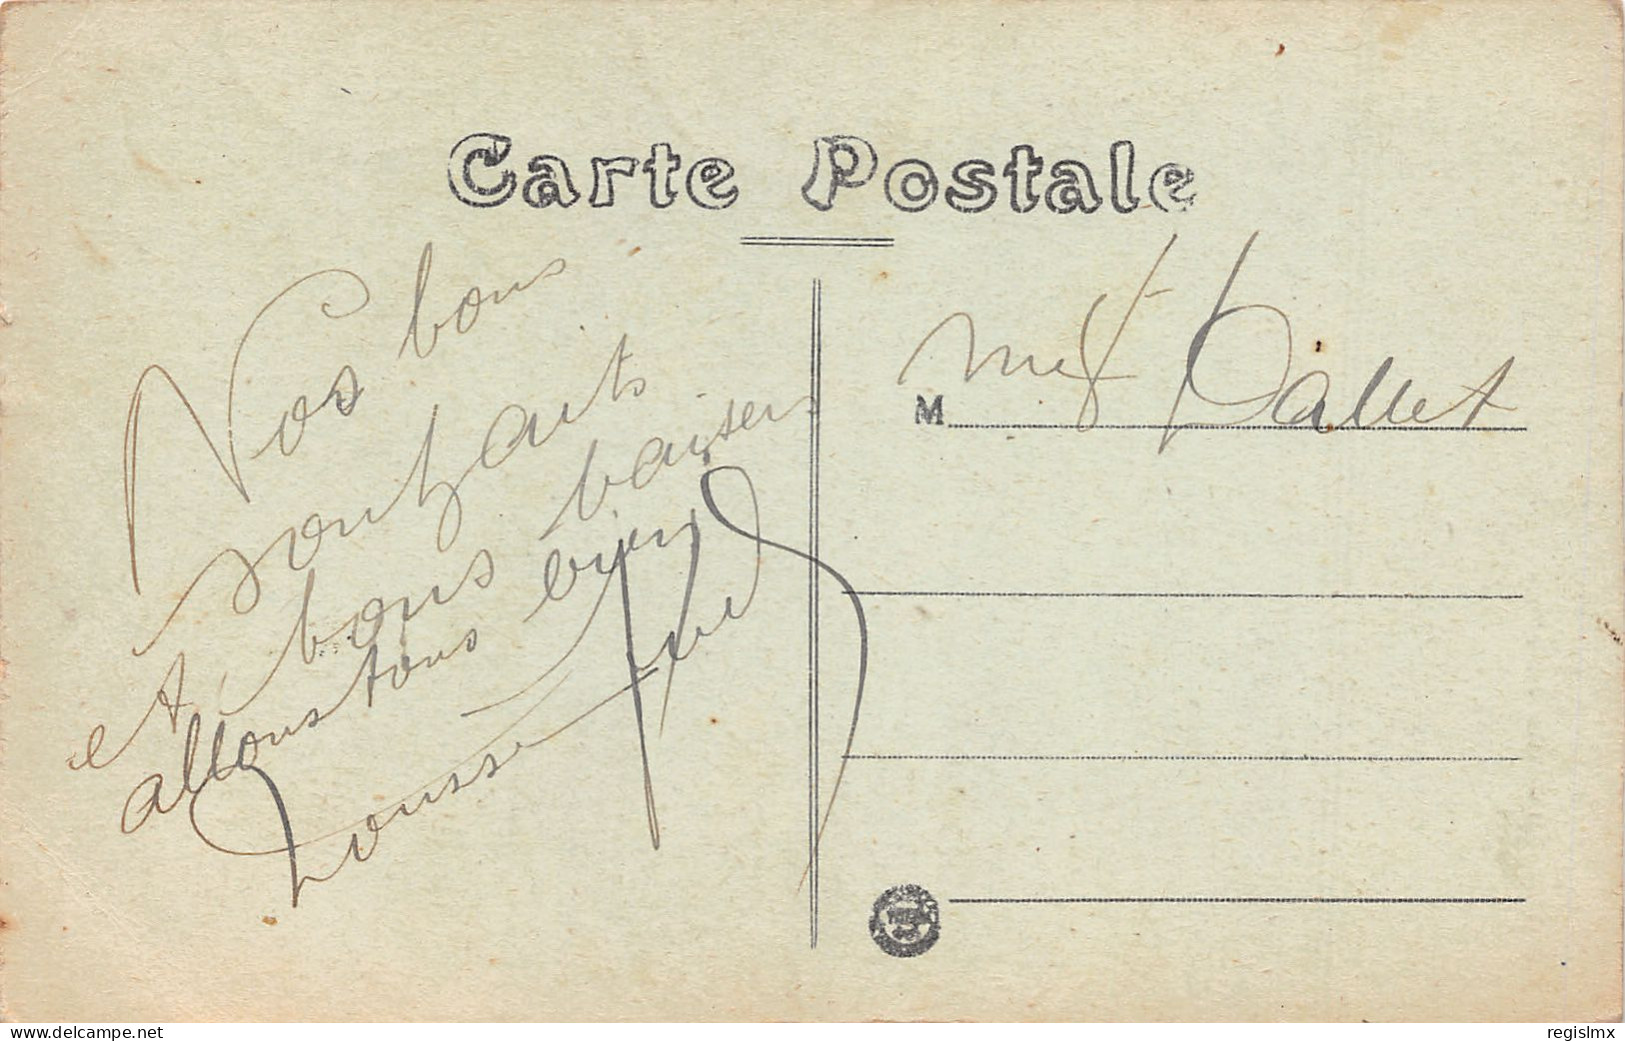 Carte Postale
Nos bons
souhaits
et bons baisers
allons tous bien
M
Ballet
delcampe.net
regislmx